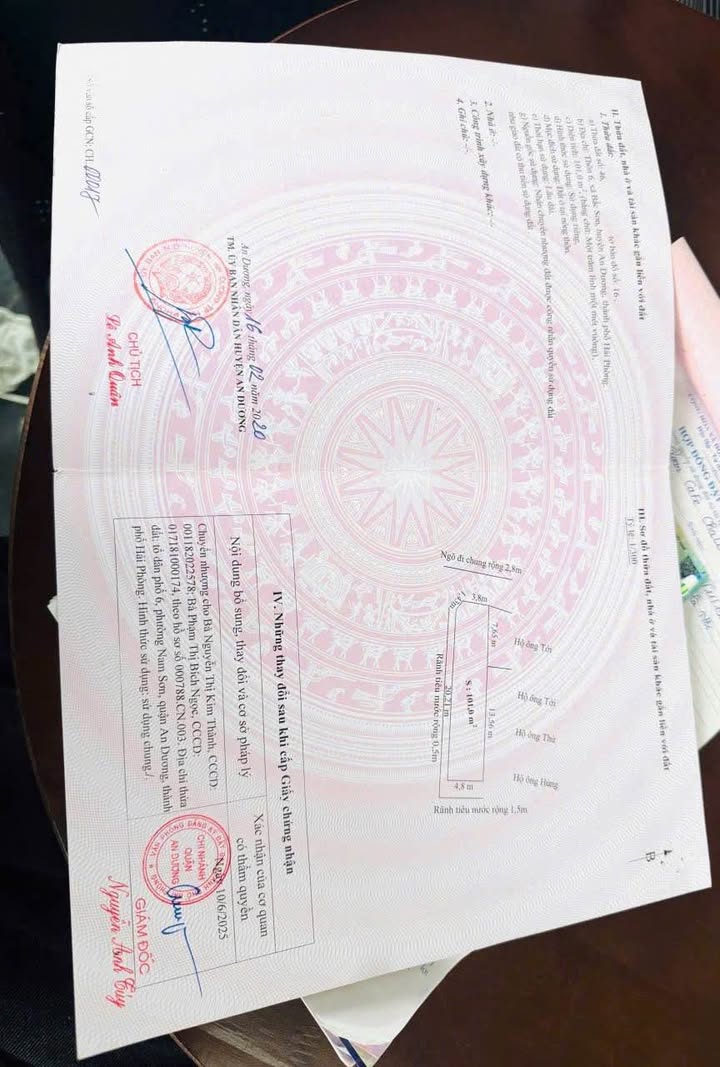 II. Thửa đất, nhà ở và tài sản khác gắn liền với đất
1. Thửa đất:
a) Thửa đất số: 46, tờ bản đồ số: 16,
b) Địa chỉ: Thôn 6, xã Bắc Sơn, huyện An Dương, thành phố Hải Phòng,
c) Diện tích: 101,0 m², (bằng chữ: Một trăm linh một mét vuông),
d) Hình thức sử dụng: Sử dụng riêng,
đ) Mục đích sử dụng: Đất ở tại nông thôn,
e) Thời hạn sử dụng: Lâu dài,
g) Nguồn gốc sử dụng: Nhận chuyển nhượng đất được công nhận quyền sử dụng đất
như giao đất có thu tiền sử dụng đất.
2. Nhà ở: -/-
3. Công trình xây dựng khác: -/-
4. Ghi chú: -/-
An Dương, ngày 16 tháng 02 năm 2020
TM. ỦY BAN NHÂN DÂN HUYỆN AN DƯƠNG
CHỦ TỊCH
Lê Anh Quân
vào sổ cấp GCN: CH
III. Sơ đồ thửa đất, nhà ở và tài sản khác gắn liền với đất
Tỷ lệ: 1/300
B
Hộ ông Tới
Hộ ông Tới
Hộ ông Thử
Hộ ông Hùng
7,65 m
13,56 m
Ngõ đi chung rộng 2,8m
3,8m
S : 101,0 m²
4,8 m
20,21 m
Rãnh tiêu nước rộng 0,5m
Rãnh tiêu nước rộng 1,5m
IV. Những thay đổi sau khi cấp Giấy chứng nhận
Nội dung bổ sung, thay đổi và cơ sở pháp lý
Xác nhận của cơ quan
có thẩm quyền
Chuyển nhượng cho Bà Nguyễn Thị Kim Thành, CCCD:
001182022578; Bà Phạm Thị Bích Ngọc, CCCD:
017181000174, theo hồ sơ số 000788.CN.003. Địa chỉ thửa
đất: tổ dân phố 6, phường Nam Sơn, quận An Dương, thành
phố Hải Phòng. Hình thức sử dụng: sử dụng chung./.
Ngày 10/6/2025
CHI NHÁNH
QUẬN
AN DƯƠNG
GIÁM ĐỐC
Nguyễn Anh Túy
HỢP ĐỒNG